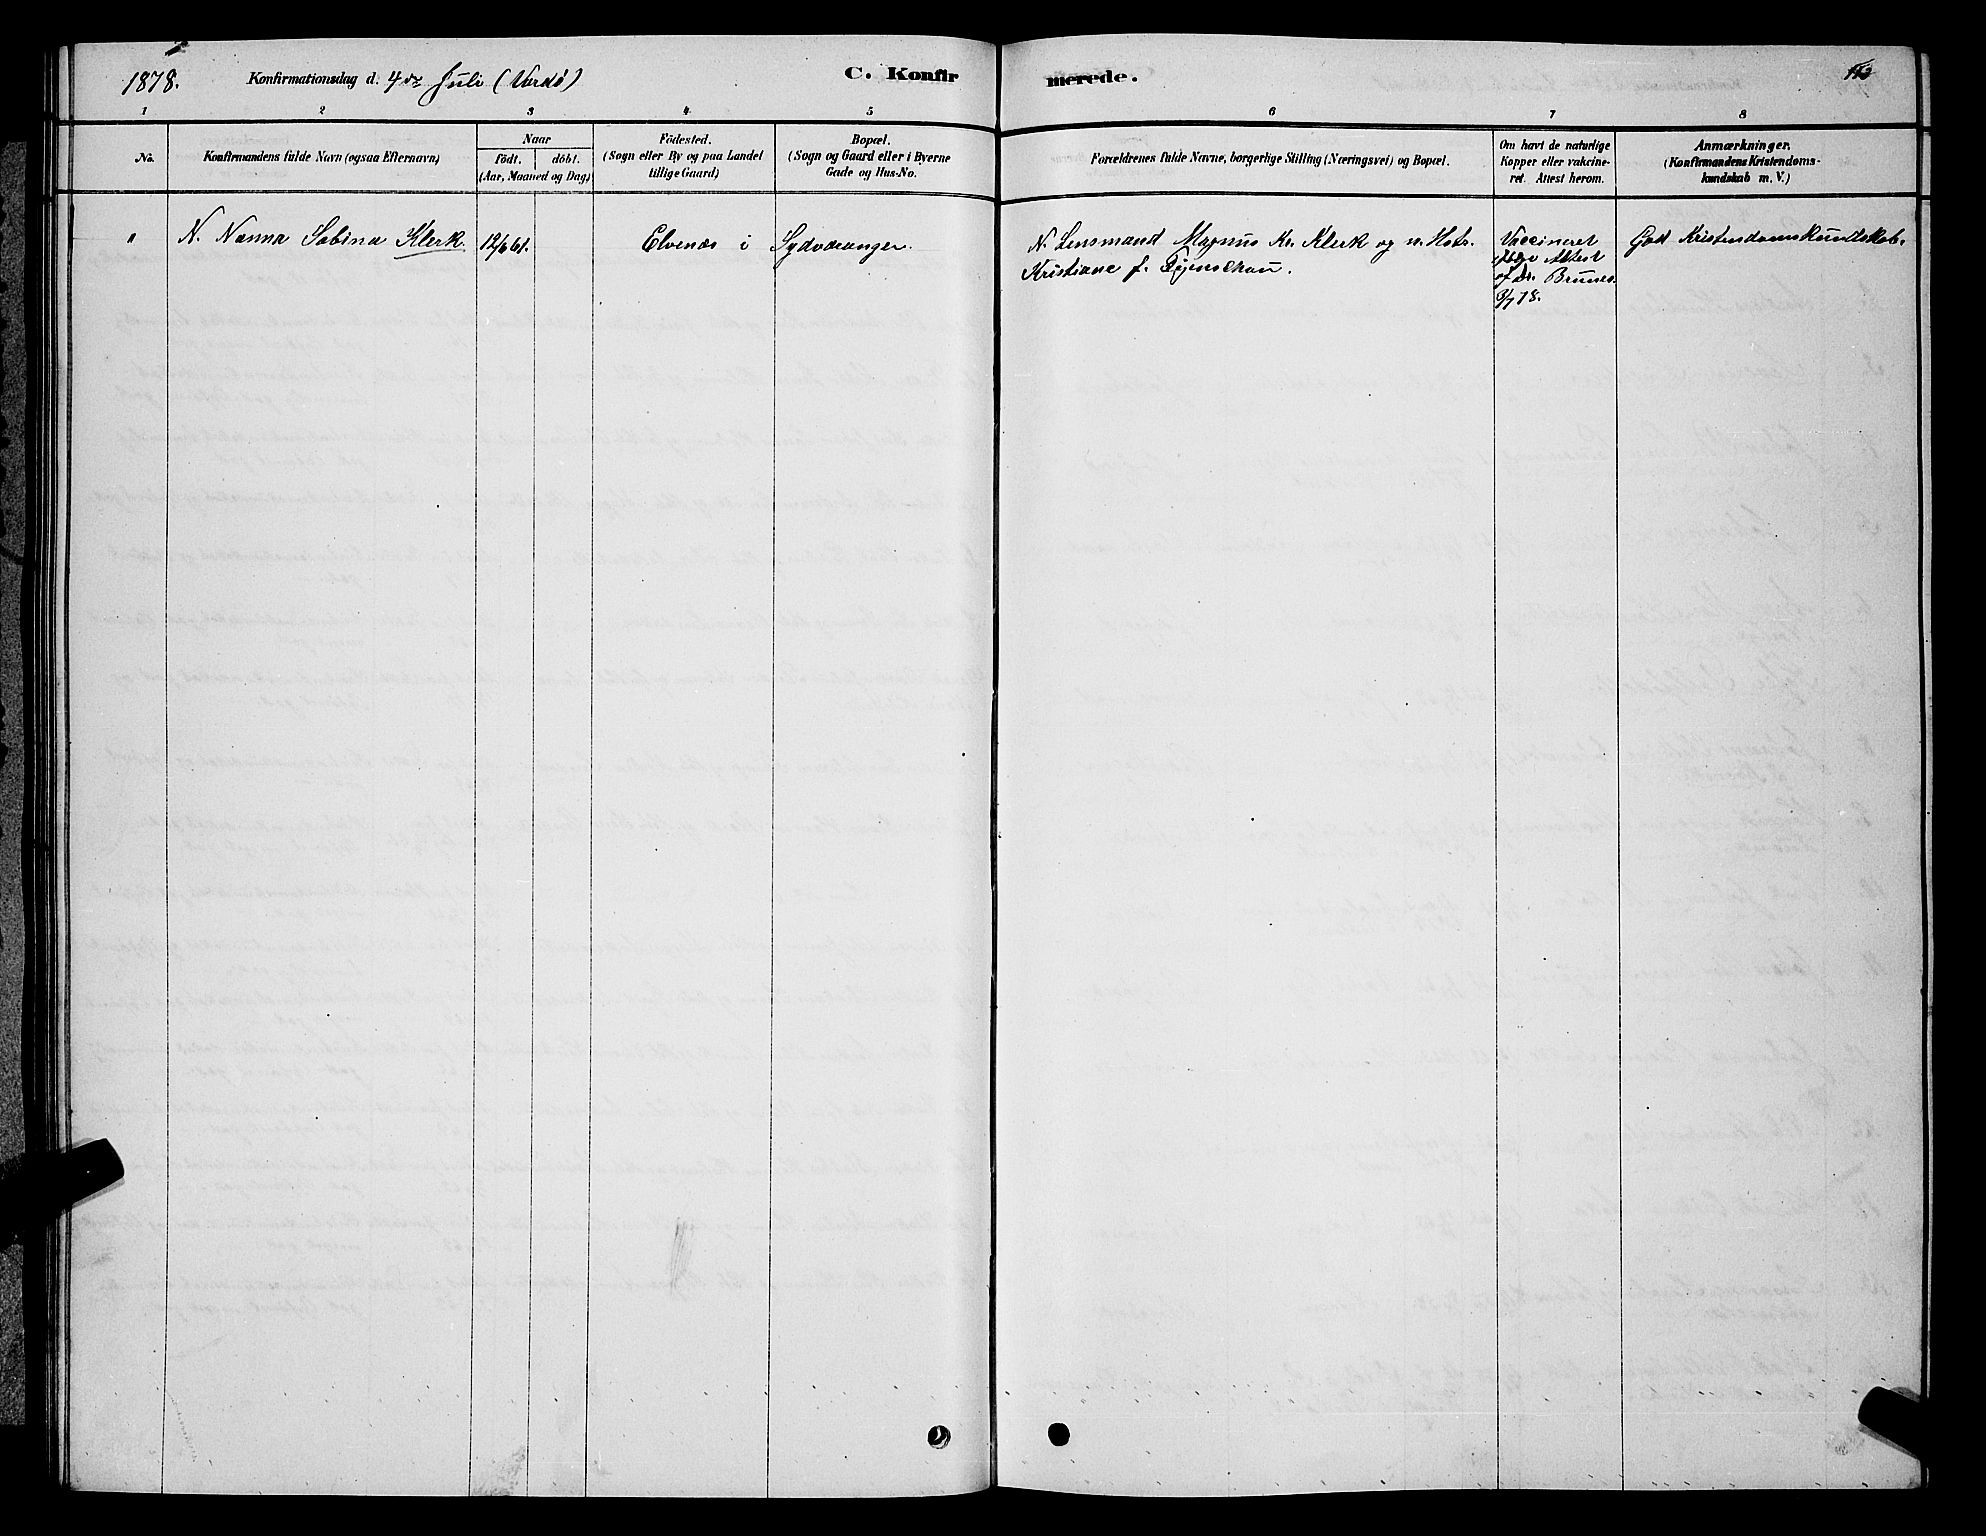 1878. Konfirmationsdag d. 4de Juli (Vardö) C. Konfirmerede. 112
1 2 3 4 5 6 7 8
No. Konfirmandens fulde Navn (ogsaa Efternavn) Naar födt. döbt. (Aar, Maaned og Dag) Födested. (Sogn eller By og paa Landet tillige Gaard) Bopæl. (Sogn og Gaard eller i Byerne Gade og Hus-No. Forældrenes fulde Navne, borgerlige Stilling (Næringsvei) og Bopæl. Om havt de naturlige Kopper eller vakcineret. Attest herom. Anmærkninger. (Konfirmandens Kristendomskundskab m. V.)
" N. Nanna Sabina Klerk. 12/6 61. Elvenæs i Sydvaranger. N. Lensmand Magnus Kr. Klerk og n. Hstr. Vaccineret God Kristendomskundskab.
Kristiane f. Attest
af Dr.